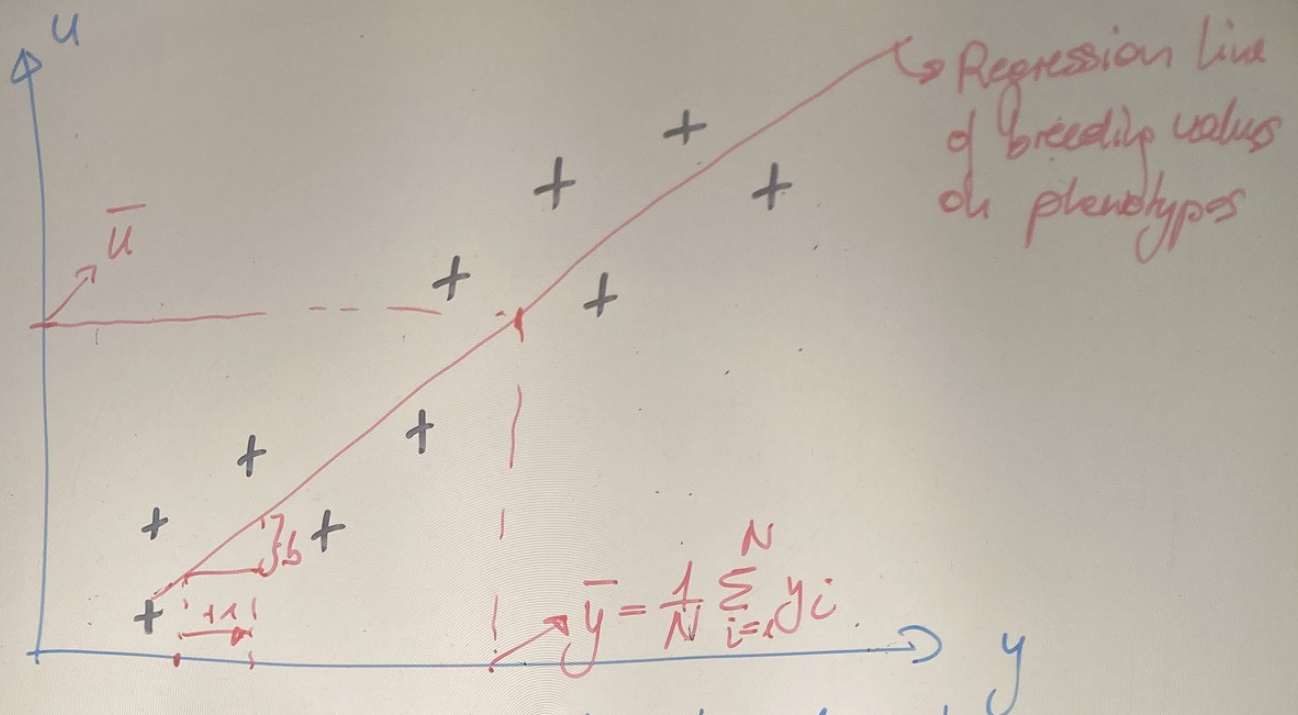 u
Regression line
of breeding values
on phenotypes
u̅
b
+1
y̅ = 1/N Σ_{i=1}^{N} yi
y